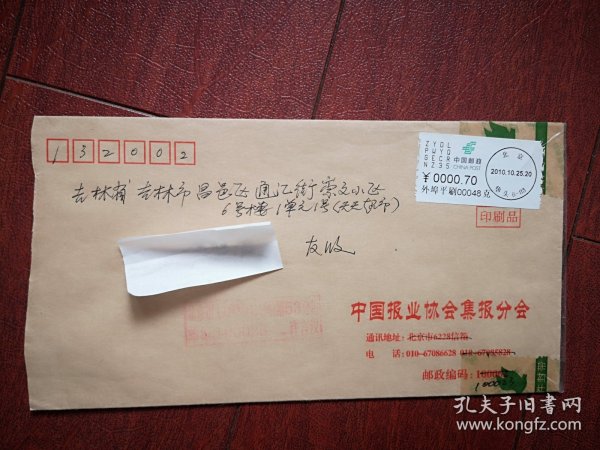 132002
ZYDL
PWYD
SECR
NZ35
中国邮政
CHINA POST
¥0000.70
外埠平刷00048克
北京
2010.10.25.20
印刷品
吉林省 吉林市昌邑区通江街崇文小区
6号楼1单元1号
友收
中国报业协会集报分会
通讯地址:北京市6228信箱
电 话:010-67086628
邮政编码:
孔夫子旧书网
www.kongfz.com